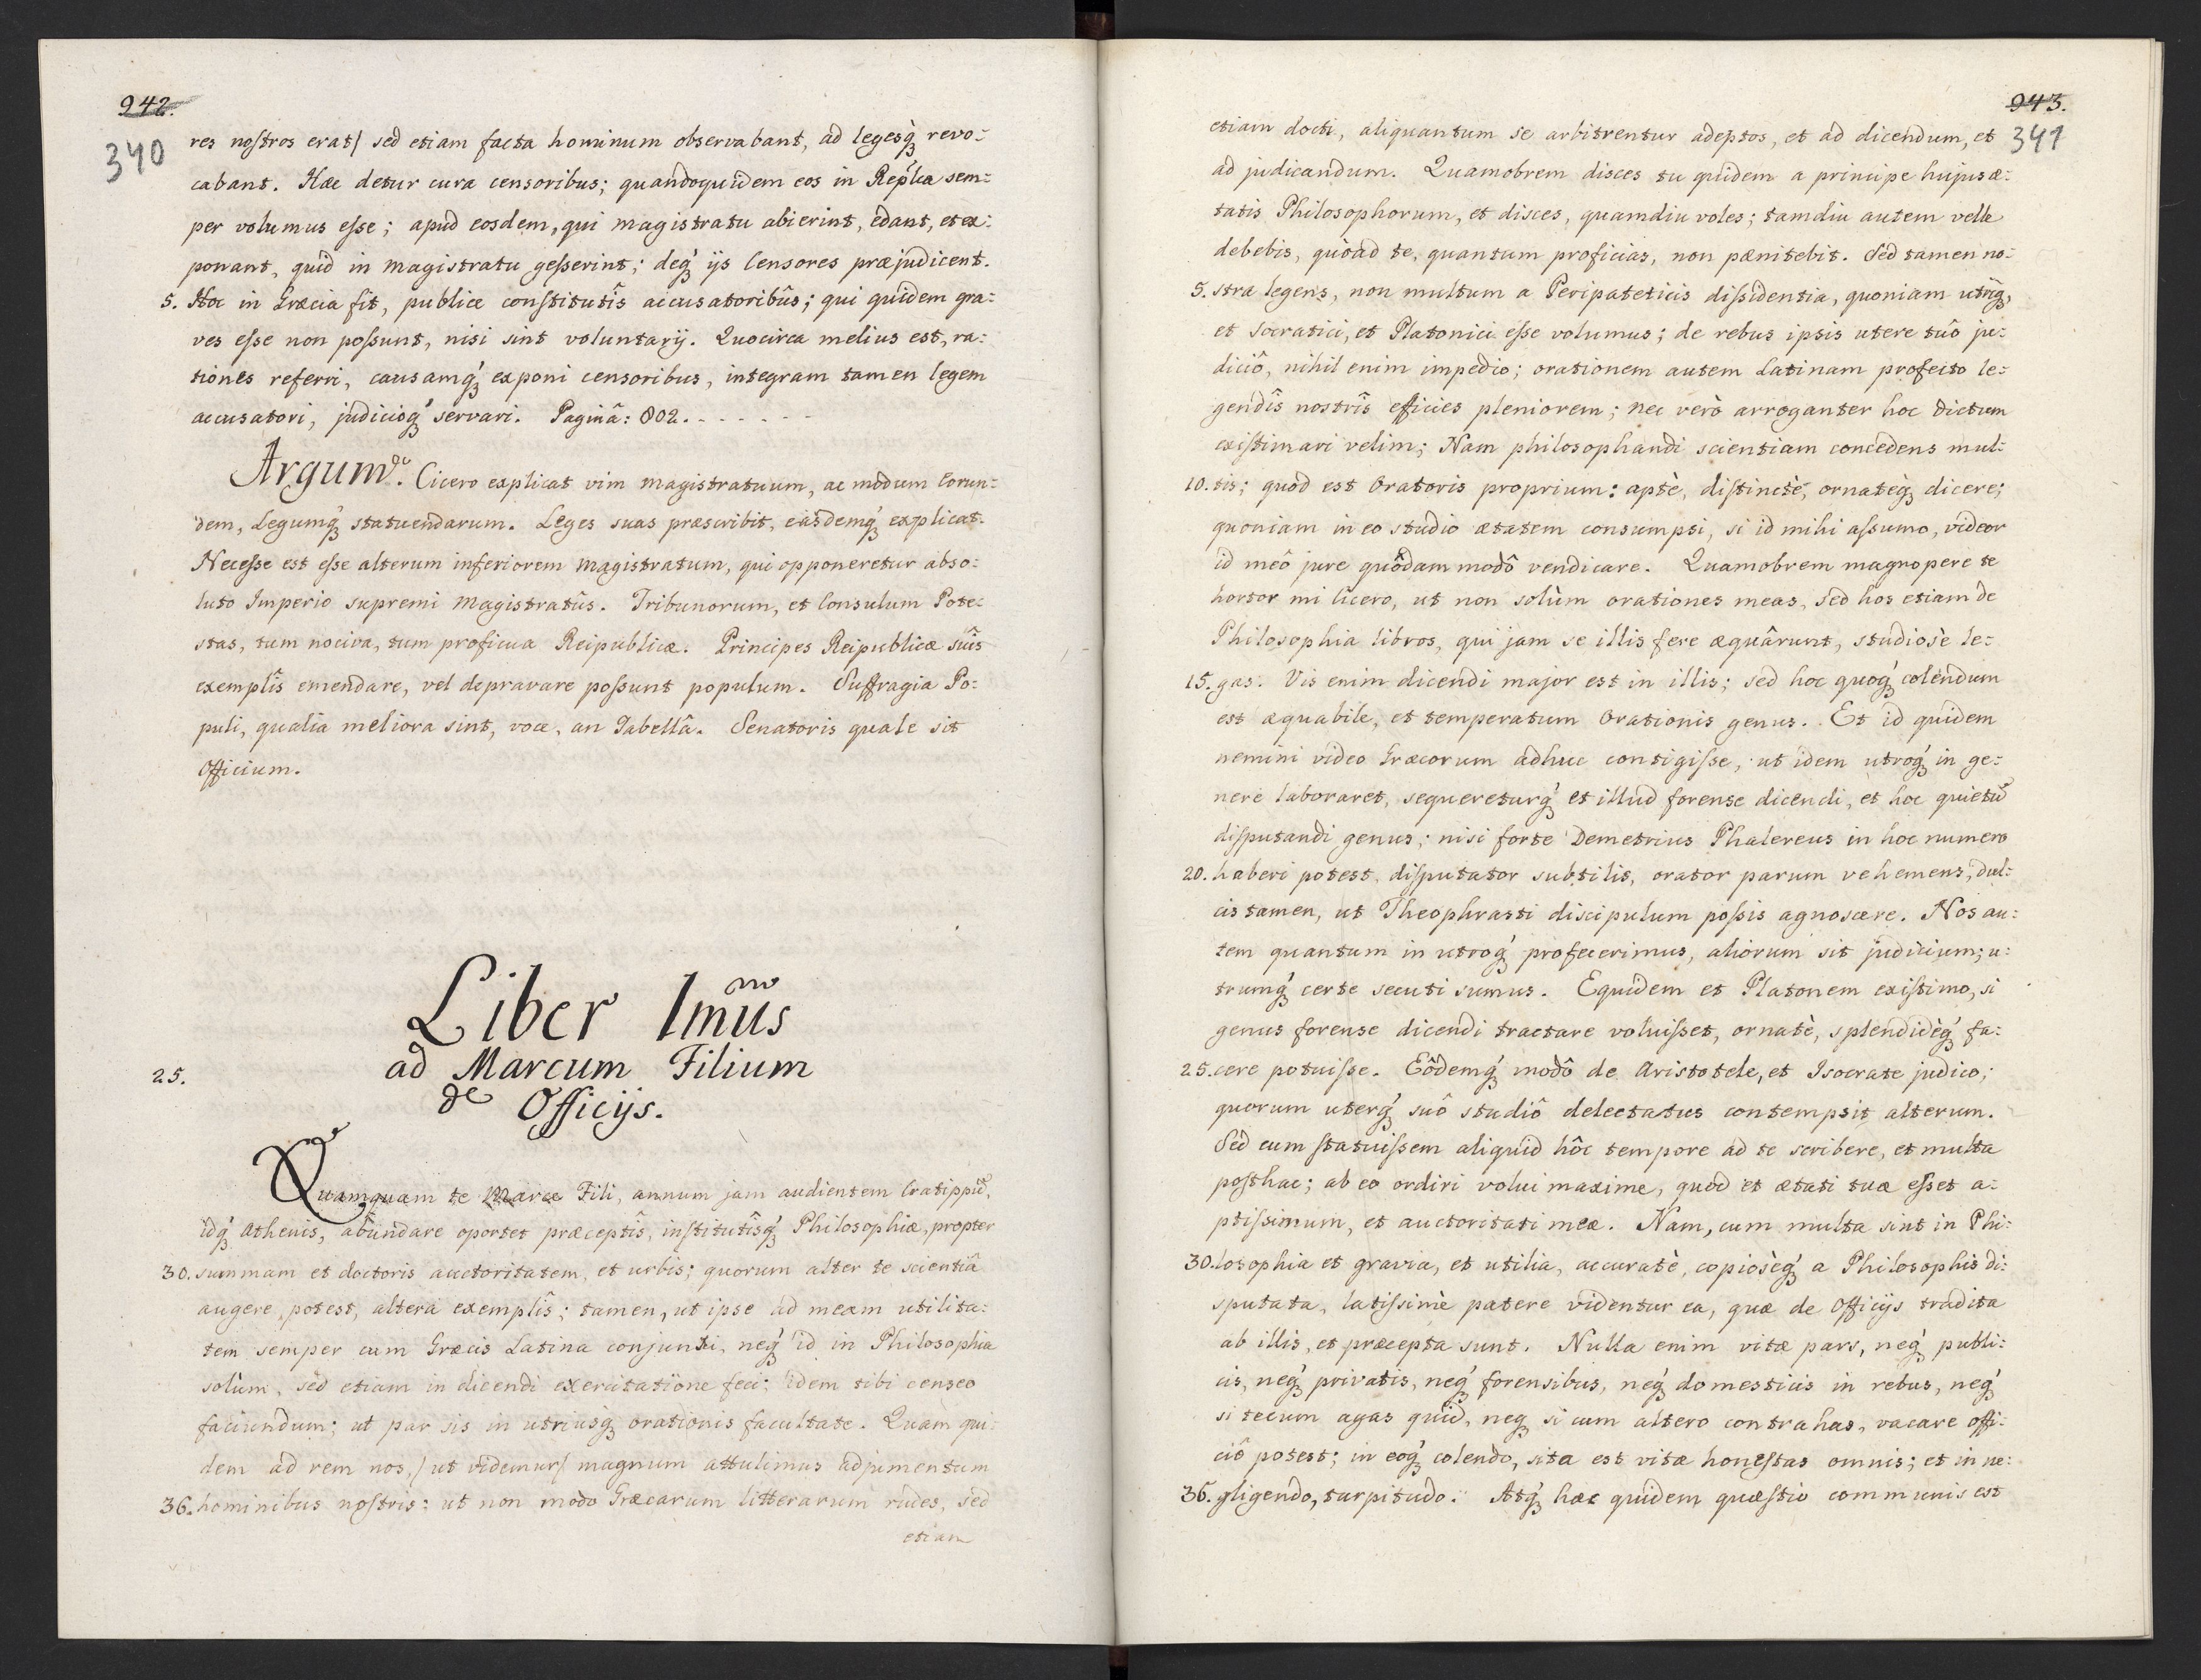 942.
340
res nostros erat/ sed etiam facta hominum observabant, ad legesq́ʒ revo:
cabant. Hæc detur cura censoribus; quandoquidem eos in Rep'lica sem:
per volumus esse; apud eosdem, qui magistratu abierint, edant, et ex:
ponant, quid in magistratu gesserint; deq́ʒ ijs Censores præjudicent.
5. Hoc in Græcia fit, publicè constitutîs accusatoribûs; qui quidem gra:
ves esse non possunt, nisi sint voluntarij. Quocirca melius est, ra:
tiones referri, causamq́ʒ exponi censoribus, integram tamen legem
accusatori, judicioq́ʒ servari. Paginâ: 802. - - - - - -
Argum.de Cicero explicat vim magistratuum, ac modum Eorun:
dem, Legumq́ʒ statuendarum. Leges suas præscribit, easdemq́ʒ explicat.
Necesse est esse alterum inferiorem magistratum, qui opponeretur abso:
luto Imperio supremi Magistratûs. Tribunorum, et Consulum Pote:
stas, tum nociva, tum proficua Reipublicæ. Principes Reipublicæ suîs
exemplîs emendare, vel depravare possunt populum. Suffragia Po:
puli, qualia meliora sint, voce, an Tabellâ. Senatoris quale sit
Officium.
Liber 1mus
25. ad Marcum Filium
de Officijs.
Quamquam te Marce Fili, annum jam audientem Cratippũ,
idq́ʒ Athenis, abundare oportet præceptîs, institutîsq́ʒ Philosophiæ, propter
30. summam et doctoris auctoritatem, et urbis; quorum alter te scientiâ
augere potest, altera exemplîs; tamen, ut ipse ad meam utilita:
tem semper cum Græcis Latina conjunxi, neq́ʒ id in Philosophia
solùm, sed etiam in dicendi exercitatione feci; idem tibi censeo
faciundum; ut par sis in utriusq́ʒ orationis facultate. Quam qui:
dem ad rem nos,/ ut videmur/ magnum attulimus adjumentum
36. hominibus nostris: ut non modo Græcarum litterarum rudes, sed
etiam
943.
341
etiam docti, aliquantum se arbitrentur adeptos, et ad dicendum, et
ad judicandum. Quamobrem disces tu quidem a principe hujus æ:
tatis Philosophorum, et disces, quamdiu voles; tamdiu autem velle
debebis, quòad te, quantum proficias, non pænitebit. Sed tamen no:
5. stra legens, non multum a Peripateticis dissidentia, quoniam utriq́ʒ,
et Socratici, et Platonici esse volumus; de rebus ipsis utere tuô ju:
diciô, nihil enim impedio; orationem autem Latinam profecto le:
gendîs nostrîs efficies pleniorem; nec verò arroganter hoc dictum
existimari velim; Nam philosophandi scientiam concedens mul:
10. tis; quod est Oratoris proprium: aptè, distinctè, ornatèq́ʒ dicere;
quoniam in eo studio ætatem consumpsi, si id mihi assumo, videor
id meô jure quôdam modô vendicare. Quamobrem magnopere te
hortor mi Cicero, ut non solùm orationes meas, sed hos etiam de
Philosophia libros, qui jam se illis fere æquârunt, studiosè le:
15. gas. Vis enim dicendi major est in illis; sed hoc quoq́ʒ colendum
est æquabile, et temperatum Orationis genus. Et id quidem
nemini video Græcorum adhuc contigisse, ut idem utroq́ʒ in ge:
nere laboraret, sequereturq́ʒ et illud forense dicendi, et hoc quietũ
disputandi genus; nisi forte Demetrius Phalereus in hoc numero
20. haberi potest, disputator subtilis, orator parum vehemens, dul:
cis tamen, ut Theophrasti discipulum possis agnoscere. Nos au:
tem quantum in utroq́ʒ profecerimus, aliorum sit judicium; u:
trumq́ʒ certe secuti sumus. Equidem et Platonem existimo, si
genus forense dicendi tractare voluisset, ornatè, splendidèq́ʒ fa:
25. cere potuisse. Eôdemq́ʒ modô de Aristotele, et Isocrate judico;
quorum uterq́ʒ suô studiô delectatus contempsit alterum.
Sed cum statuissem aliquid hôc tempore ad te scribere, et multa
posthac; ab eo ordiri volui maxime, quod et ætati tuæ esset a:
ptissimum, et auctoritati meæ. Nam, cum multa sint in Phi:
30. losophia et gravia, et utilia, accuratè, copiosèq́ʒ a Philosophis di:
sputata, latissimè patere videntur ea, quæ de Officijs tradita
ab illis, et præcepta sunt. Nulla enim vitæ pars, neq́ʒ publi:
cis, neq́ʒ privatis, neq́ʒ forensibus, neq́ʒ domesticis in rebus, neq́ʒ
si tecum agas quid, neqʒ si cum altero contrahas, vacare offi:
ciô potest; in eoq́ʒ colendo, sita est vitæ honestas omnis; et in ne:
36. gligendo, turpitudo. Atq́ʒ hæc quidem quæstio communis est